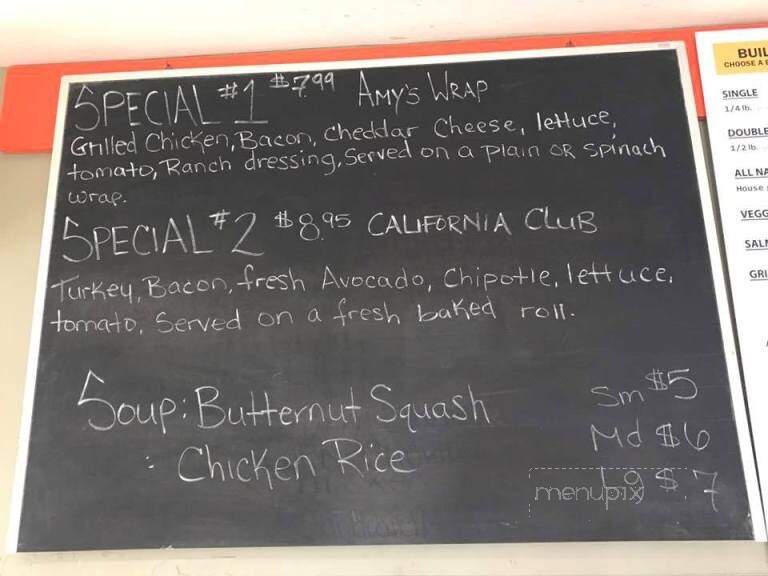 SPECIAL #1 $7.99 AMY'S WRAP
Grilled Chicken, Bacon, cheddar cheese, lettuce,
tomato, Ranch dressing, Served on a plain OR spinach
wrap.
SPECIAL #2 $8.95 CALIFORNIA CLUB
Turkey, Bacon, fresh Avocado, Chipotle, lettuce,
tomato, Served on a fresh baked roll.
Soup: Butternut Squash
: Chicken Rice
Sm $5
Md $6
Lg $.7
menupix
BUIL
CHOOSE A B
SINGLE
1/4 lb.
DOUBLE
1/2 lb.
ALL NA
House
VEGG
SALM
GRI